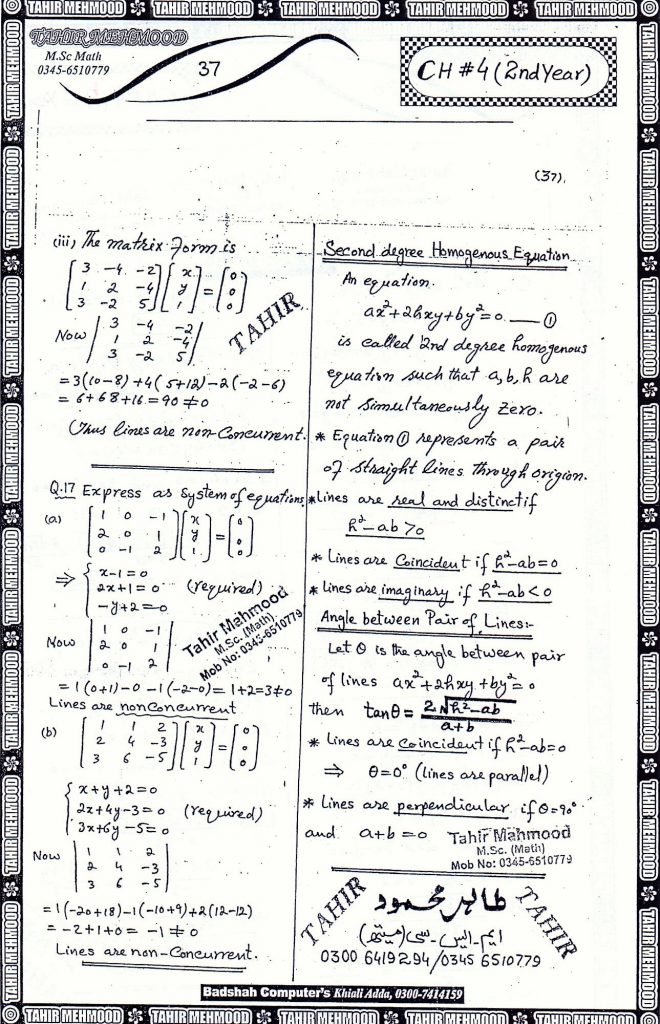 TAHIR MEHMOOD TAHIR MEHMOOD TAHIR MEHMOOD TAHIR MEHMOOD TAHIR MEHMOOD
TAHIR MEHMOOD
M.Sc Math
0345-6510779
37
CH #4 (2nd Year)
(37).
(iii) The matrix Form is
[3 -4 -2; 1 2 -4; 3 -2 5] [x; y; 1] = [0; 0; 0]
Now |3 -4 -2; 1 2 -4; 3 -2 5|
= 3(10-8) +4(5+12) -2(-2-6)
= 6+68+16 = 90 ≠ 0
Thus lines are non-Concurrent.
TAHIR
Q.17 Express as system of equations.
(a) [1 0 -1; 2 0 1; 0 -1 2] [x; y; 1] = [0; 0; 0]
⇒ { x-1=0
2x+1=0 (required)
-y+2=0
Now |1 0 -1; 2 0 1; 0 -1 2|
Tahir Mahmood
M.Sc. (Math)
Mob No: 0345-6510779
= 1(0+1)-0-1(-2-0) = 1+2=3≠0
Lines are nonconcurrent
(b) [1 1 2; 2 4 -3; 3 6 -5] [x; y; 1] = [0; 0; 0]
{ x+y+2=0
2x+4y-3=0 (required)
3x+6y-5=0
Now |1 1 2; 2 4 -3; 3 6 -5|
= 1(-20+18)-1(-10+9)+2(12-12)
= -2+1+0 = -1 ≠ 0
Lines are non-Concurrent.
Second degree Homogenous Equation
An equation.
ax²+2hxy+by²=0 ___ ①
is called 2nd degree homogenous
equation such that a,b,h are
not simultaneously zero.
* Equation ① represents a pair
of straight lines through origion.
* Lines are real and distinct if
h²-ab>0
* Lines are Coincident if h²-ab=0
* Lines are imaginary if h²-ab<0
Angle between Pair of Lines:-
Let θ is the angle between pair
of lines ax²+2hxy+by²=0
then tanθ = 2√h²-ab / a+b
* Lines are coincident if h²-ab=0
⇒ θ=0° (lines are parallel)
* Lines are perpendicular if θ=90°
and a+b=0
Tahir Mahmood
M.Sc. (Math)
Mob No: 0345-6510779
TAHIR
طاہر محمود
TAHIR
ایم۔ایس۔سی (میتھ)
0300 6419294/0345 6510779
Badshah Computer's Khiali Adda, 0300-7414159
TAHIR MEHMOOD TAHIR MEHMOOD TAHIR MEHMOOD TAHIR MEHMOOD TAHIR MEHMOOD